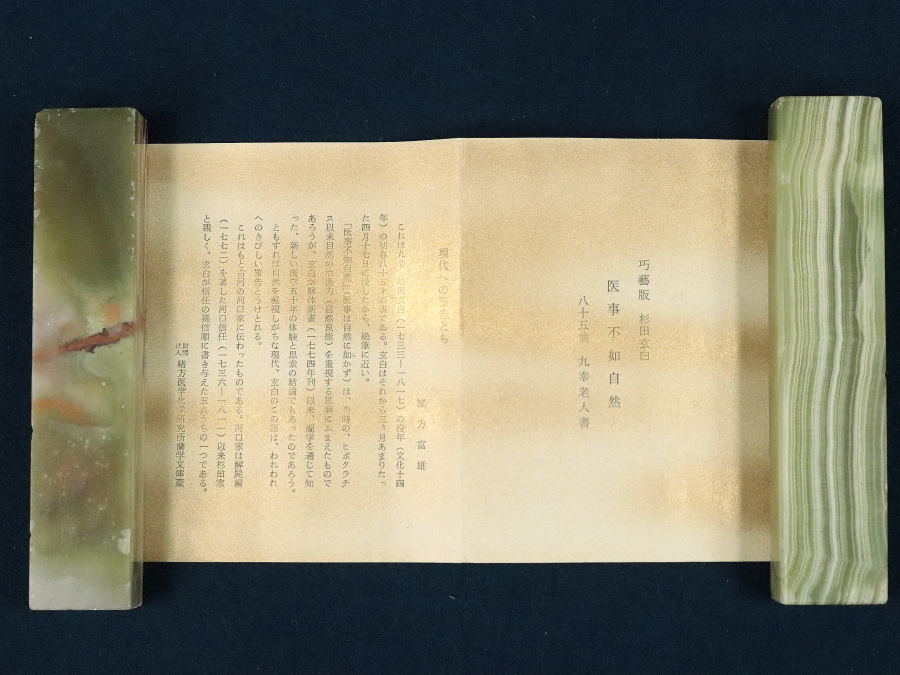 巧藝版 杉田玄白
医事不如自然
八十五翁 九幸老人書
現代への警告とも
緒方富雄
これは九幸 杉田玄白（一七三三―一八一七）の没年（文化十四
年）の初春八十五才の書である。玄白はそれから三ヵ月あまりたっ
た四月十七日に没したから、絶筆に近い。
「医事不如自然」（医事は自然に如かず）は、当時の、ヒポクラテ
ス以来自然の治癒力（自然良能）を重視する思潮にふまえたもので
あろうが、玄白が解体新書（一七七四年刊）以来、蘭学を通じて知
った、新しい医学五十年の体験と思索の結論でもあったのであろう。
ともすれば自然を軽視しがちな現代、玄白のこの語は、われわれ
へのきびしい警告とうけとれる。
これはもと古河の河口家に伝わったものである。河口家は解屍編
（一七七二）を著した河口信任（一七三六―一八一一）以来杉田家
と親しく、玄白が信任の孫信順に書き与えた五点うちの一つである。
財団法人 緒方医学化学研究所蘭学文庫蔵